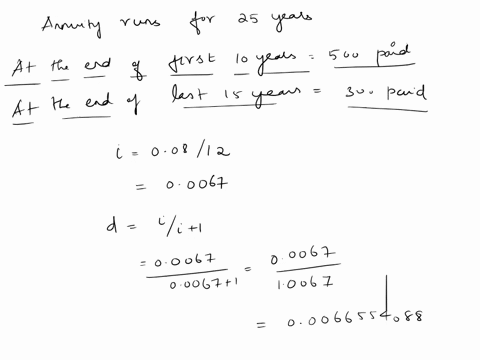 Annuity runs for 25 years
At the end of first 10 years = 500 paid
At the end of last 15 years = 300 paid
i = 0.08/12
= 0.0067
d = i/i+1
= 0.0067/0.0067+1 = 0.0067/1.0067
= 0.0066554088